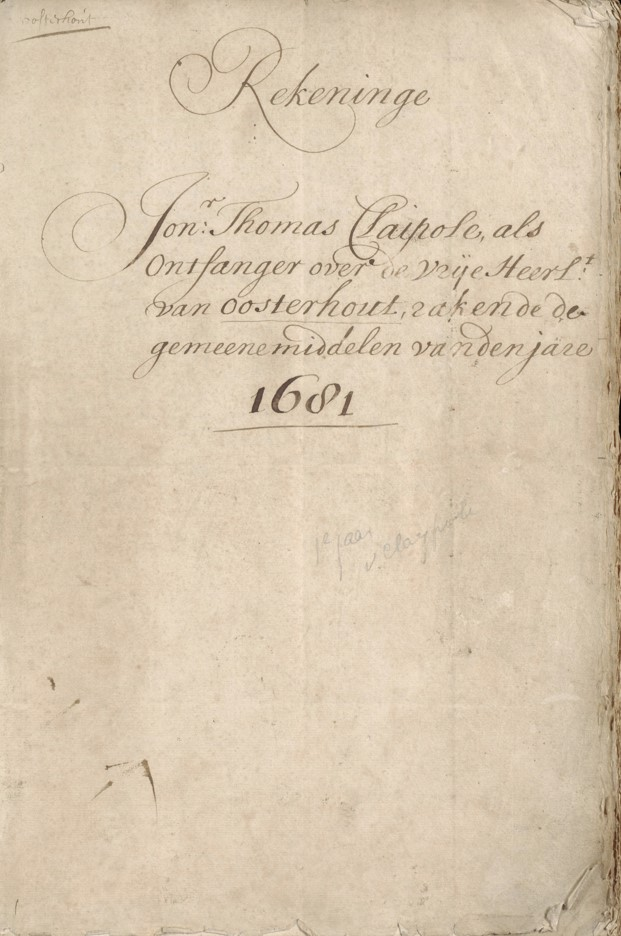 oosterhout
Rekeninge
Jonr: Thomas Claipole, als
Ontfanger over de vrije Heerlt:
van oosterhout, rakende de
gemeene middelen van den jare
1681
1e jaar
v. Claypole